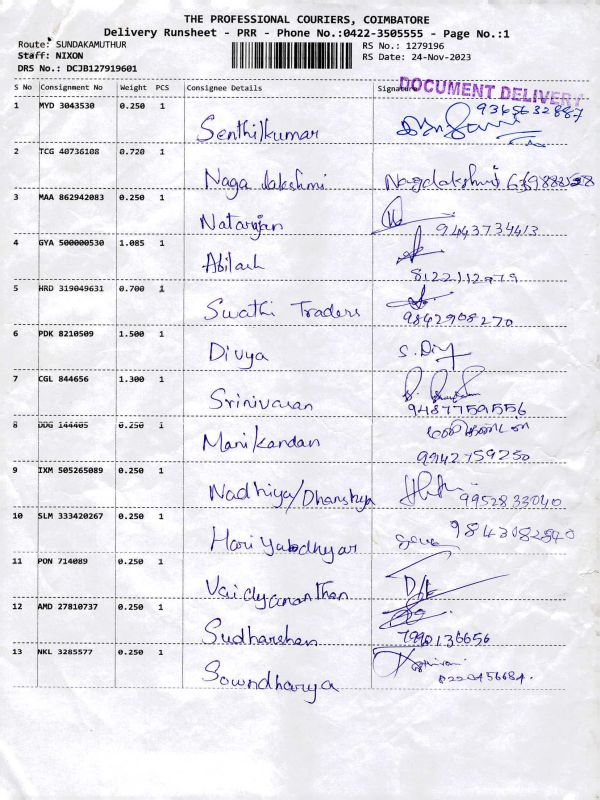 THE PROFESSIONAL COURIERS, COIMBATORE
Delivery Runsheet - PRR - Phone No.:0422-3505555 - Page No.:1
Route: SUNDAKAMUTHUR
RS No.: 1279196
Staff: NIXON
RS Date: 24-Nov-2023
DRS No.: DCJB127919601
S No Consignment No Weight PCS Consignee Details Signature
DOCUMENT DELIVERY
1 MYD 3043530 0.250 1
9365632887
Senthilkumar
2 TCG 40736108 0.720 1
Naga lakshmi Nagalakshmi
3 MAA 862942083 0.250 1
Natarajan 9443734413
4 GYA 500000530 1.085 1
Abilash
8122112979
5 HRD 319049631 0.700 1
Swathi Traders
9842908270
6 PDK 8210509 1.500 1
Divya S. Divy
7 CGL 844656 1.300 1
Srinivasan
9487759556
8 DDG 144405 0.250 1
Manikandan மணிகண்டன்
9942759250
9 IXM 505265089 0.250 1
Nadhiya/Dhanshya 9952833040
10 SLM 333420267 0.250 1
9843082840
Hari
11 PON 714089 0.250 1
Vaidyananthan
12 AMD 27810737 0.250 1
Sudharshan 7990136656
13 NKL 3285577 0.250 1
Sowndharya 8220456684.